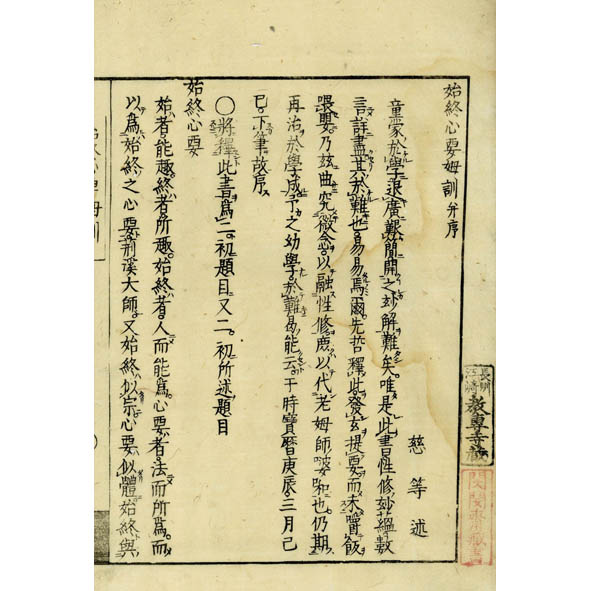 始終心要姆訓并序
慈等述
童蒙於學退廣艱閒開之妙解難矣唯是此書性修妙蘊數
言詳盡其於難也易易焉爾先哲釋此發玄提要而未嘗飯
喂嬰乃玆曲究微念以融性修庶以代老姆師婆與也仍期
再治於學成予之幼學於難曷能云于時寶曆庚辰三月己
巳下筆故序
〇將釋此書為二初題目又二初所述題目
始終心要
始者能趣終者所趣始終者人而能為心要者法而所為而
以為始終之心要荊溪大師又始終似宗心要似體始終與
長州
江崎
教專寺藏